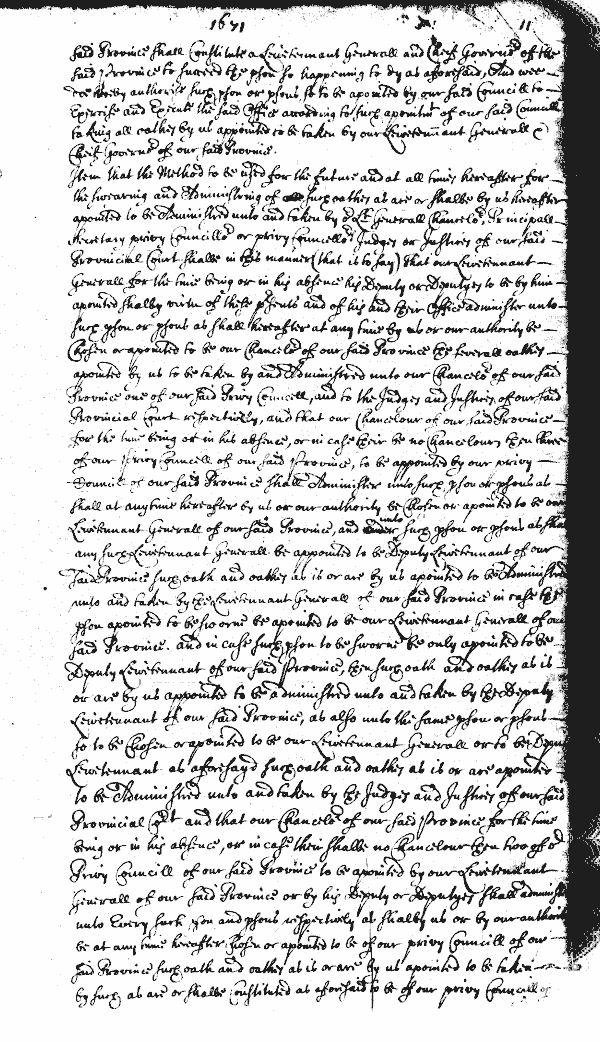 1671 11
said Province shall Constitute a Leivetennant Generall and Cheife Governor of the
said Province to succeed the pson so happening to dy as aforesaid, And wee
doe hereby authorise such pson or psons so to be apointed by our said Councill to
Exercise and Execute the said Office according to such apointmt of our said Councill
taking all oathes by us appointed to be taken by our Leivetennant Generall &
Cheife Governor of our said Province.
Item that the Method to be used for the future and at all times hereafter for
the swearing and Administring of such oathes as are or shalbe by us hereafter
apointed to be Administred unto and taken by Generall Chancelor, Principall
Secretary privy Councillor or privy Councellors Judges or Justices of our said
Provinciall Court shalbe in this manner (that is to say) that our Leivetennant
Generall for the time being or in his absence his Deputy or Deputyes to be by him
apointed shalby virtue of these psents and of his and their Office administer unto
such pson or psons as shall hereafter at any time by us or our authority be
Chosen or apointed to be our Chancelor of our said Province the severall oathes
apointed by us to be taken by and Administred unto our Chancelor of our said
Province one of our said Privy Councell, and to the Judges and Justices of our said
Provincial Court respectively, and that our Chancelour of our said Province
for the time being or in his absence, or in case their be no Chancelour, then three
of our Privy Councell of our said Province, to be appointed by our privy
Councill of our said Province shall Administer unto such pson or psons as
shall at anytime hereafter by us or our authority be Chosen or apointed to be our
Leivetennant Generall of our said Province, and unto such pson or psons as shall
any such Leivetennant Generall be appointed to be Deputy Leivetennant of our
said Province such oath and oathes as is or are by us apointed to be Administred
unto and taken by the Leivetennant Generall of our said Province in case the
pson apointed to be sworne be apointed to be our Leivetennant Generall of our
said Province. and in case such pson to be sworne be only apointed to be
Deputy Leivetennant of our said Province, then such oath and oathes as is
or are by us appointed to be administred unto and taken by the Deputy
Leivetennant of our said Province, as also unto the same pson or psons
so to be Chosen or apointed to be our Leivetennant Generall or to be Deputy
Leivetennant as aforesayd such oath and oathes as is or are apointed
to be Administred unto and taken by the Judges and Justices of our said
Provincial Court and that our Chancelor of our said Province for the time
being or in his absence, or in case their shalbe no Chancelour then two of or
Privy Councill of our said Province to be apointed by our Leivetennant
Generall of our said Province or by his Deputy or Deputyes shall administer
unto Every such pson and psons respectively as shalby us or by our authority
be at any time hereafter Chosen or apointed to be of our privy Councill of our
said Province such oath and oathes as is or are by us apointed to be taken
by such as are or shalbe Constituted as aforesaid to be of our privy Councill of